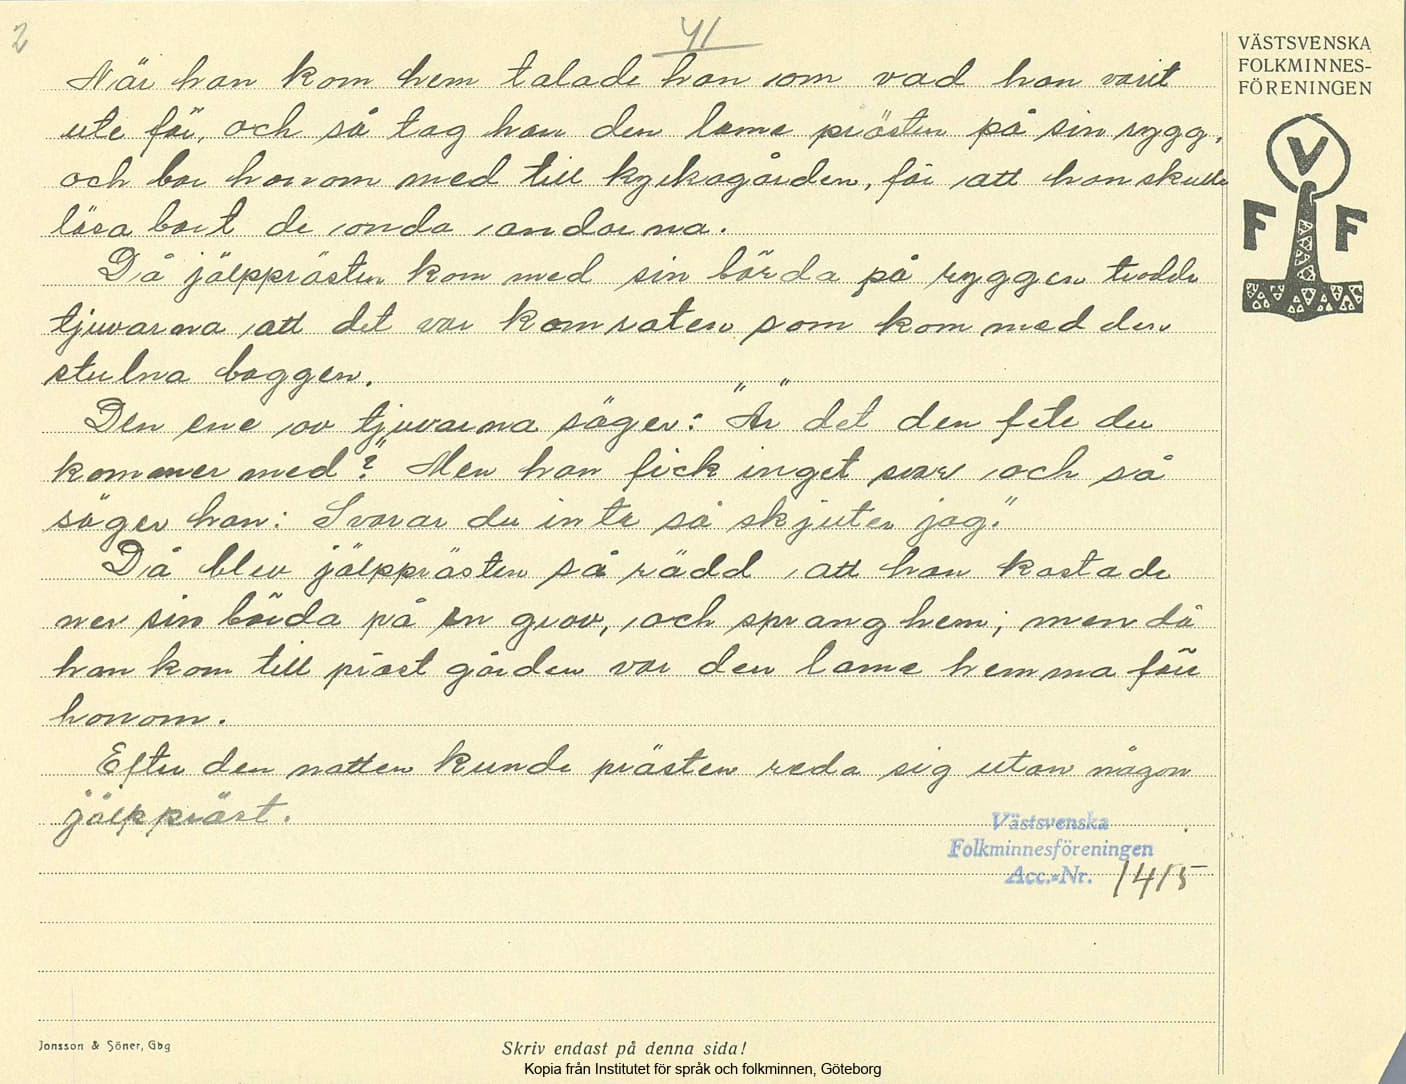 2
41
När han kom hem talade han om vad han varit
ute för, och så tog han den lame prästen på sin rygg,
och bar honom med till kyrkogården, för att han skulle
läsa bort de onda andarna.
Då jälpprästen kom med sin börda på ryggen trodde
tjuvarna att det var kamraten som kom med den
stulna baggen.
Den ene av tjuvarna säger: "Är det den fete du
kommer med?" Men han fick inget svar och så
säger han: Svarar du inte så skjuter jag."
Då blev jälpprästen så rädd att han kastade
ner sin börda på en grav, och sprang hem; men då
han kom till prästgården var den lame hemma för
honom.
Efter den natten kunde prästen reda sig utan någon
jälppräst.
VÄSTSVENSKA
FOLKMINNES-
FÖRENINGEN
V
F F
Västsvenska
Folkminnesföreningen
Acc.-Nr. 1415
Jonsson & Söner, Gbg
Skriv endast på denna sida!
Kopia från Institutet för språk och folkminnen, Göteborg